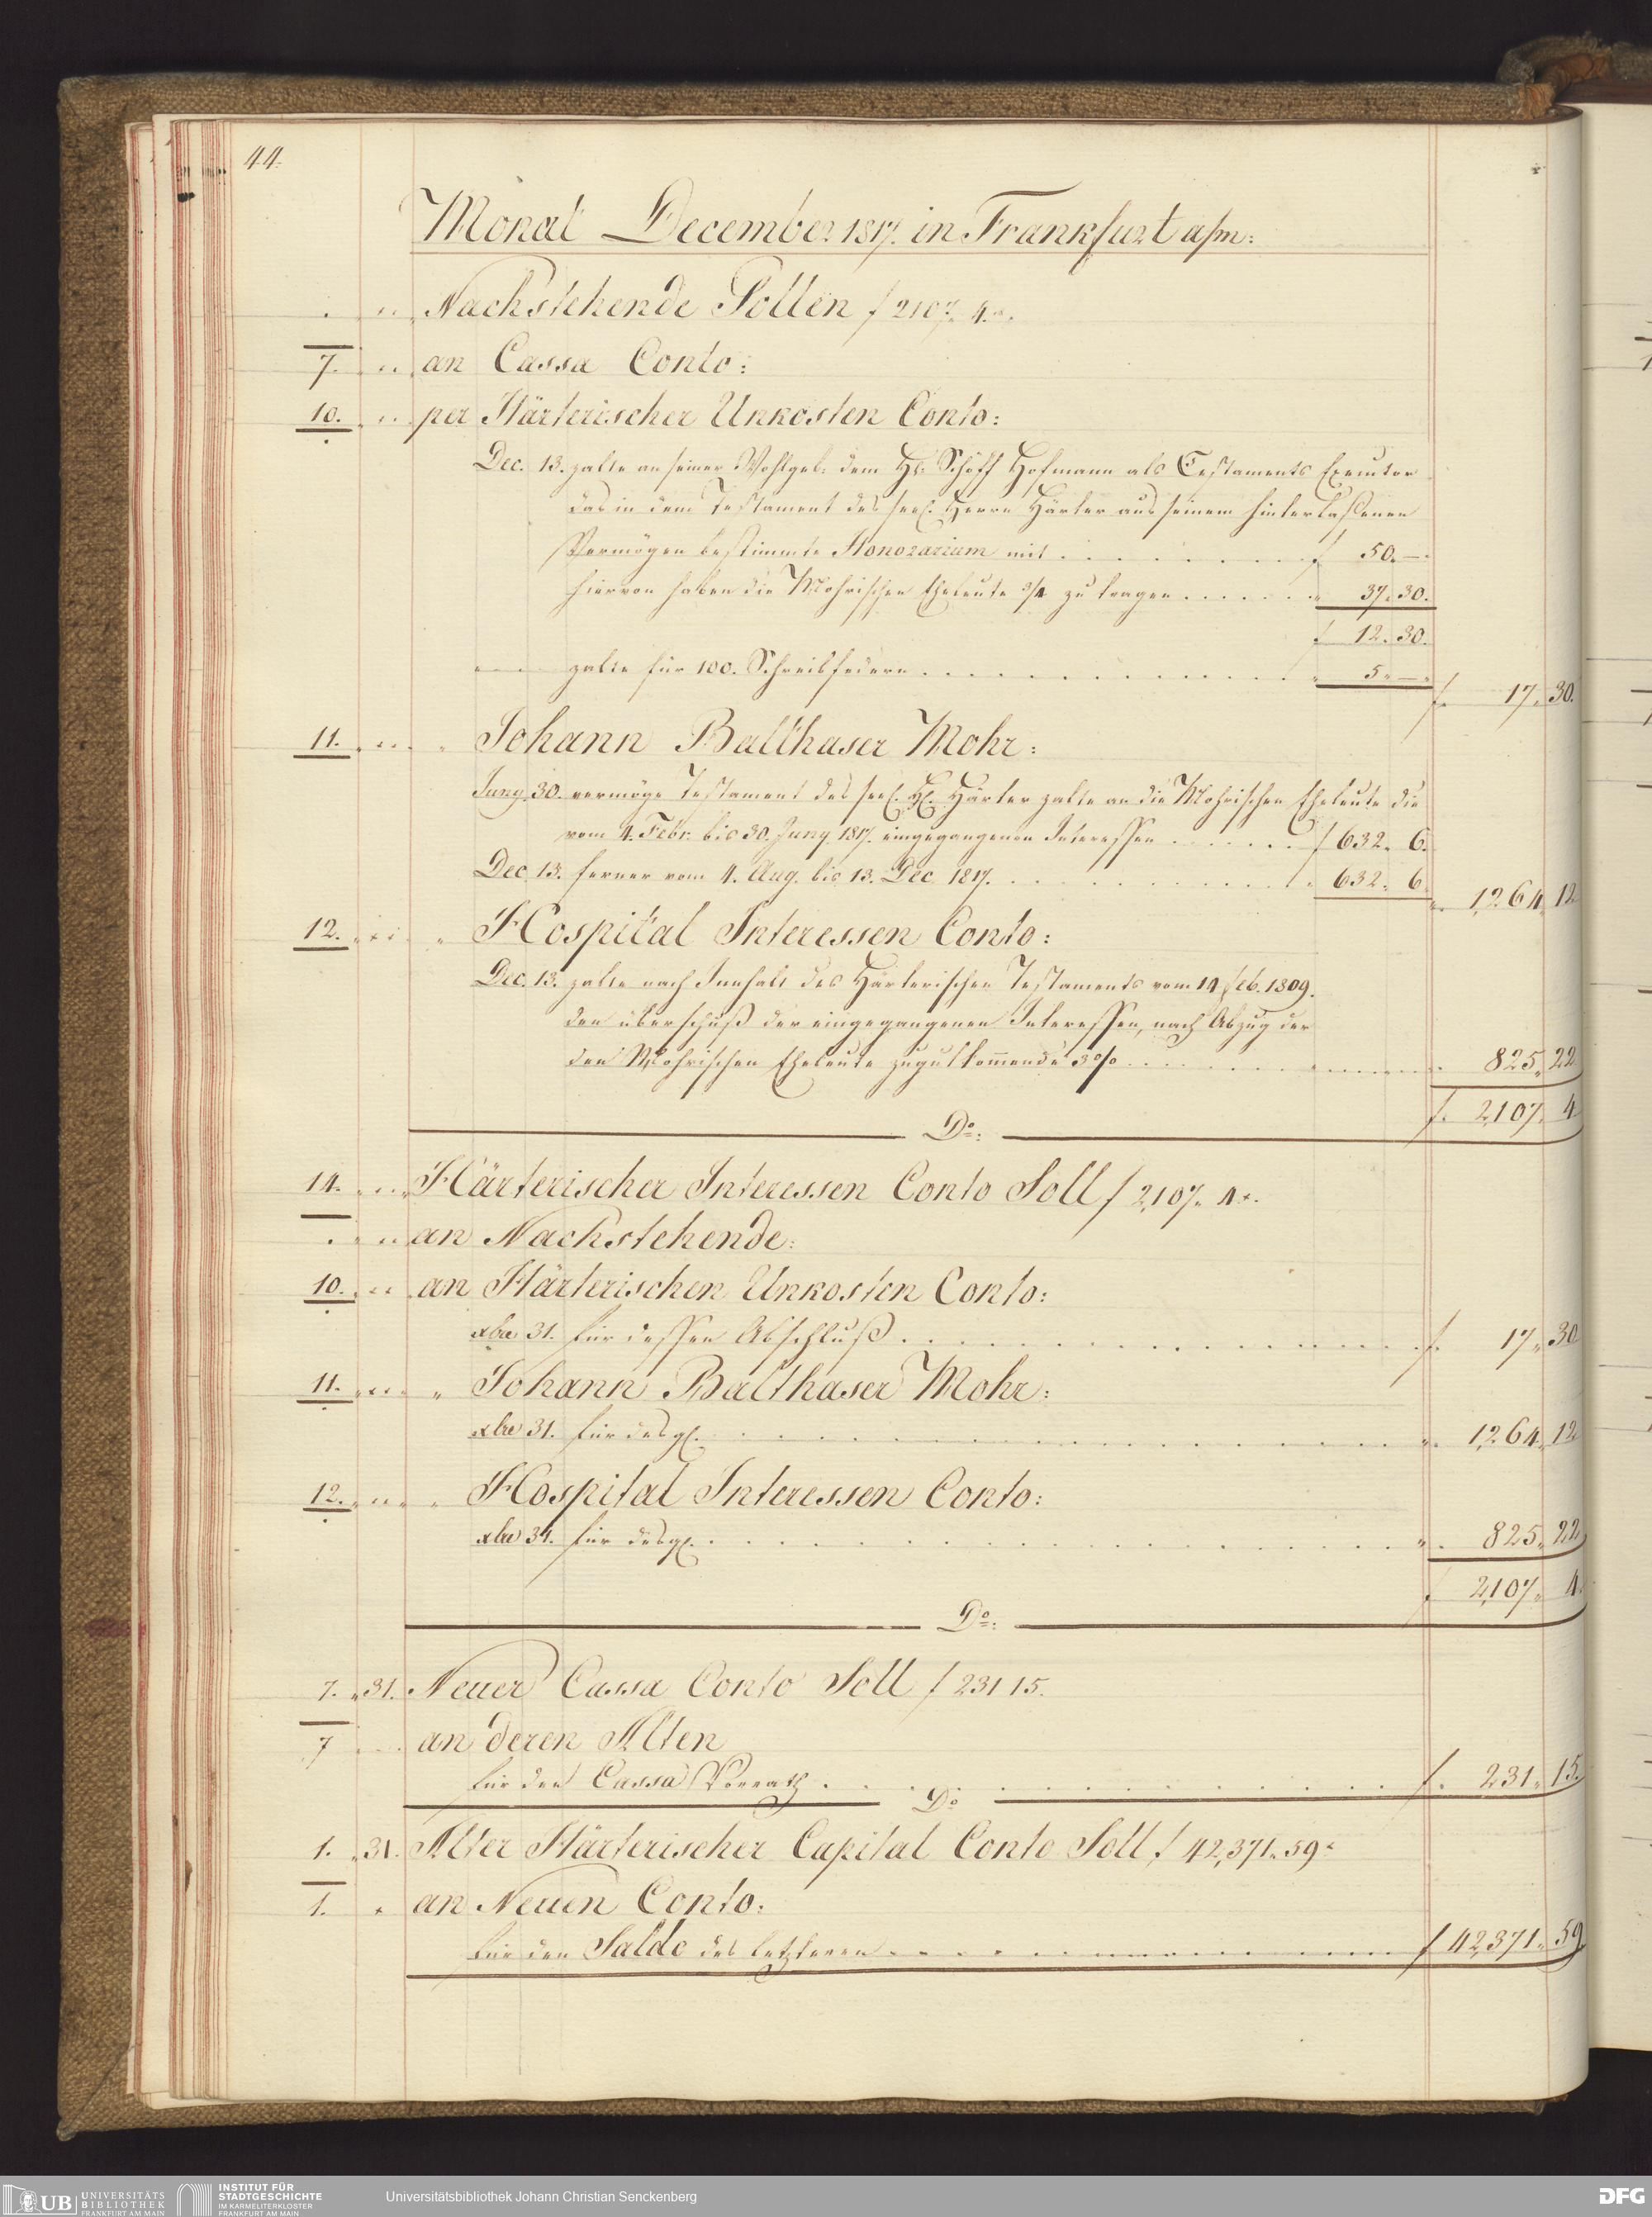 44.
Monat December 1817. in Frankfurt a/m:
Nachstehende Sollen f 2107. 4.
7. an Cassa Conto:
10. per Härterischer Unkosten Conto:
Dec. 13. zalte an seiner Wohlgeb. dem H. Schöff Hofmann als Testaments Executor
das in dem Testament des seel. Herrn Härter aus seinem hinterlaßenen
Vermögen bestimmte Honorarium mit . . . f 50. —
hiervon haben die Mohrischen Eheleute 3/4 zu tragen . . . " 37. 30.
f 12. 30.
zalte für 100. Schreibfedern . . . " 5. —
f. 17. 30.
11. " Johann Balthaser Mohr:
Juny 30. vermöge Testament des seel. H. Härter zalte an die Mohrischen Eheleute die
vom 4. Febr. bis 30. Juny 1817. eingegangenen Interessen . . . f 632. 6.
Dec. 13. ferner vom 4. Aug. bis 13. Dec. 1817. . . . " 632. 6.
" 1,264. 12
12. " Hospital Interessen Conto:
Dec. 13. zalte nach Innhalt des Härterischen Testaments vom 14 Feb. 1809.
den überschuß der eingegangenen Interessen, nach Abzug der
den Mohrischen Eheleute zugutkommende 3% . . . 825. 22
f. 2,107. 4
Do:
14. Härterischer Interessen Conto Soll f 2,107. 4 x.
an Nachstehende:
10. an Härterischen Unkosten Conto:
xbre 31. für dessen Abschluß . . . f. 17. 30
11. " Johann Balthaser Mohr:
xbre 31. für desgl. . . . " 1,264. 12
12. " Hospital Interessen Conto:
xbre 31. für desgl. . . . " 825. 22
f 2,107. 4.
Do:
7. 31. Neuer Cassa Conto Soll f 231 15.
7 an deren Alten
für den Cassa Vorrath . . . f. 231. 15.
Do
1. 31. Alter Härterischer Capital Conto Soll f 42,371. 59 x
1. an Neuen Conto:
für den Saldo des letzteren . . . f 42,371. 59
UB UNIVERSITÄTS
BIBLIOTHEK
FRANKFURT AM MAIN
INSTITUT FÜR
STADTGESCHICHTE
IM KARMELITERKLOSTER
FRANKFURT AM MAIN
Universitätsbibliothek Johann Christian Senckenberg
DFG